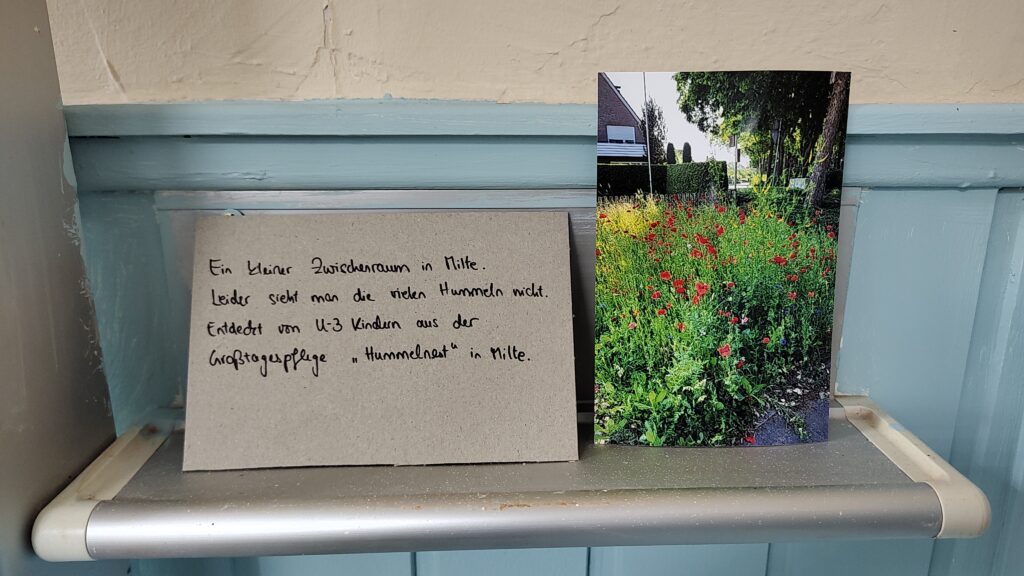 Ein kleiner Zwischenraum in Milte.
Leider sieht man die vielen Hummeln nicht.
Entdeckt von U-3 Kindern aus der
Großtagespflege „Hummelnest" in Milte.